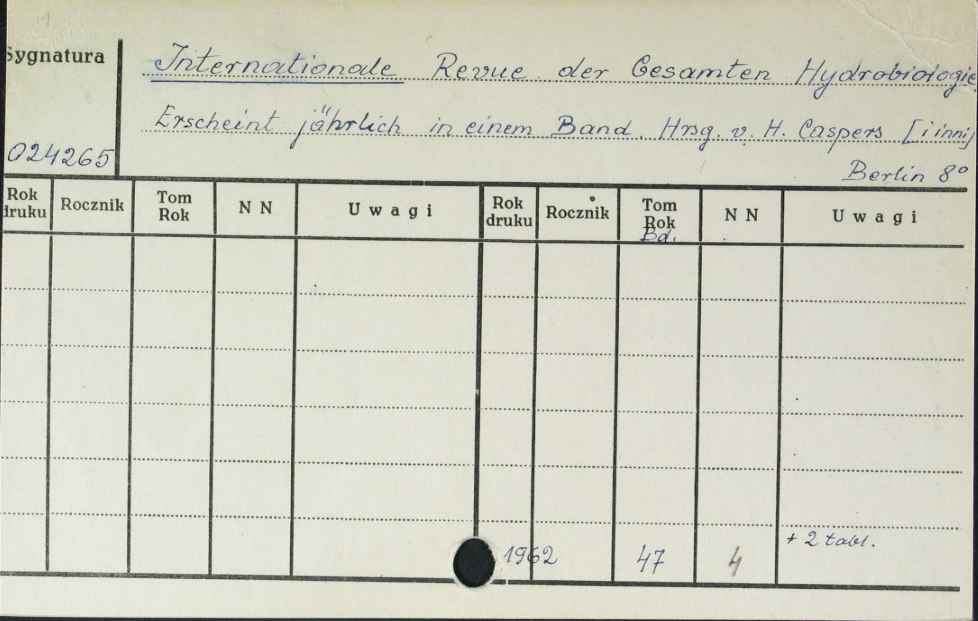 Sygnatura
Internationale Revue der Gesamten Hydrobiologie
Erscheint jährlich in einem Band. Hrsg. v. H. Caspers [i inni]
024265
Berlin 8°
Rok druku Rocznik Tom Rok N N Uwagi Rok druku Rocznik Tom Rok N N Uwagi
Bd.
+ 2 tabl.
1962 47 4